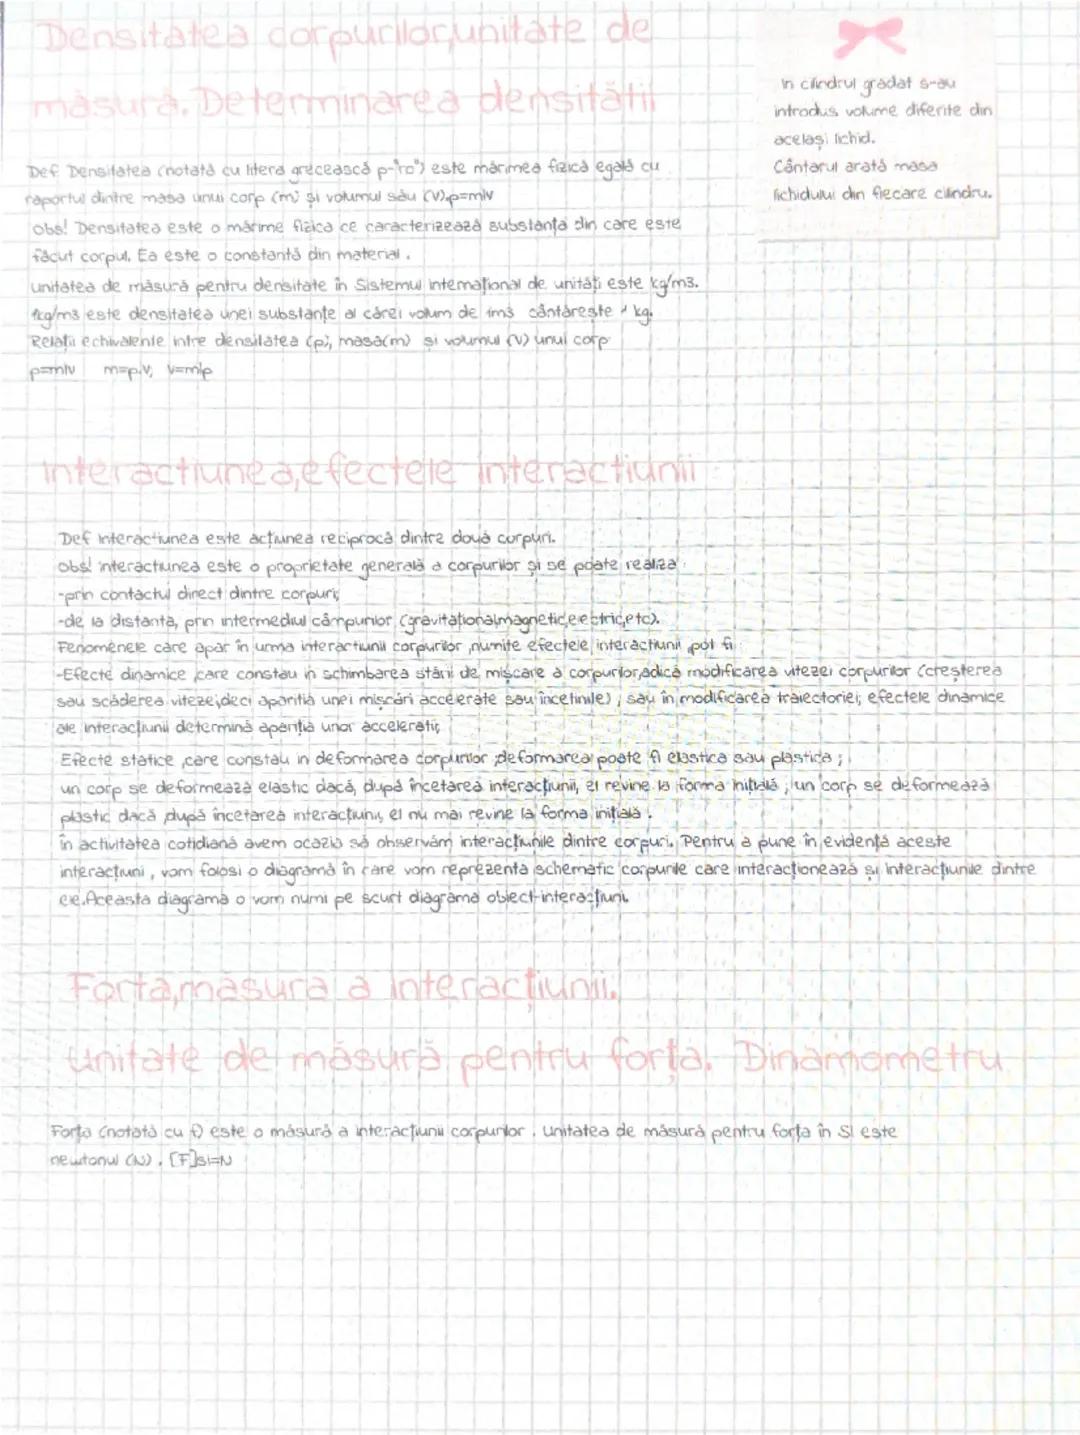 Densitatea corpurilor,unitate de
măsură. Determinarea densității
Def Densitatea (notată cu litera grecească p-"ro") este mărimea fizică egală cu
raportul dintre masa unui corp (m) și volumul său (V).p=m/v
obs! Densitatea este o mărime fizica ce caracterizează substanța din care este
făcut corpul. Ea este o constantă din material.
unitatea de măsură pentru densitate în Sistemul internațional de unități este kg/m3.
1kg/m3 este densitatea unei substanțe al cărei volum de 1m3 cântărește 1 kg.
Relații echivalente intre densitatea (p), masa(m) și volumul (V) unui corp
p=m/v m=p.V, V=m/p
in cilindrul gradat s-au
introdus volume diferite din
același lichid.
Cântarul arată masa
lichidului din fiecare cilindru.
interactiunea,efectele interactiunii
Def interactiunea este acțiunea reciprocă dintre două corpuri.
obs! interactiunea este o proprietate generală a corpurilor și se poate realiza
-prin contactul direct dintre corpuri;
-de la distantă, prin intermediul câmpurilor (gravitațional,magnetic,electric,etc).
Fenomenele care apar în urma interactiunii corpurilor ,numite efectele interactiunii pot fi
-Efecte dinamice ,care constau in schimbarea stării de mișcare a corpurilor,adică modificarea vitezei corpurilor (creșterea
sau scăderea vitezei,deci apariția unei mișcări accelerate sau încetinite) ; sau în modificarea traiectoriei; efectele dinamice
ale interacțiunii determină apariția unor accelerații;
Efecte statice ,care constau in deformarea corpurilor ;deformarea poate fi elastica sau plastica ;
un corp se deformează elastic dacă, după încetarea interacțiunii, el revine la forma inițială ; un corp se deformează
plastic dacă ,după încetarea interacțiunii, el nu mai revine la forma inițială.
în activitatea cotidiană avem ocazia să observăm interacțiunile dintre corpuri. Pentru a pune în evidență aceste
interacțiuni , vom folosi o diagramă în care vom reprezenta schematic corpurile care interacționează și interacțiunile dintre
ele.Aceasta diagrama o vom numi pe scurt diagrama obiect-interacțiuni.
Forta,măsura a interacțiunii.
unitate de măsură pentru forța. Dinamometru
Forța (notată cu f) este o măsură a interacțiunii corpurilor . Unitatea de măsură pentru forța în SI este
newtonul (N) . [F]si=N